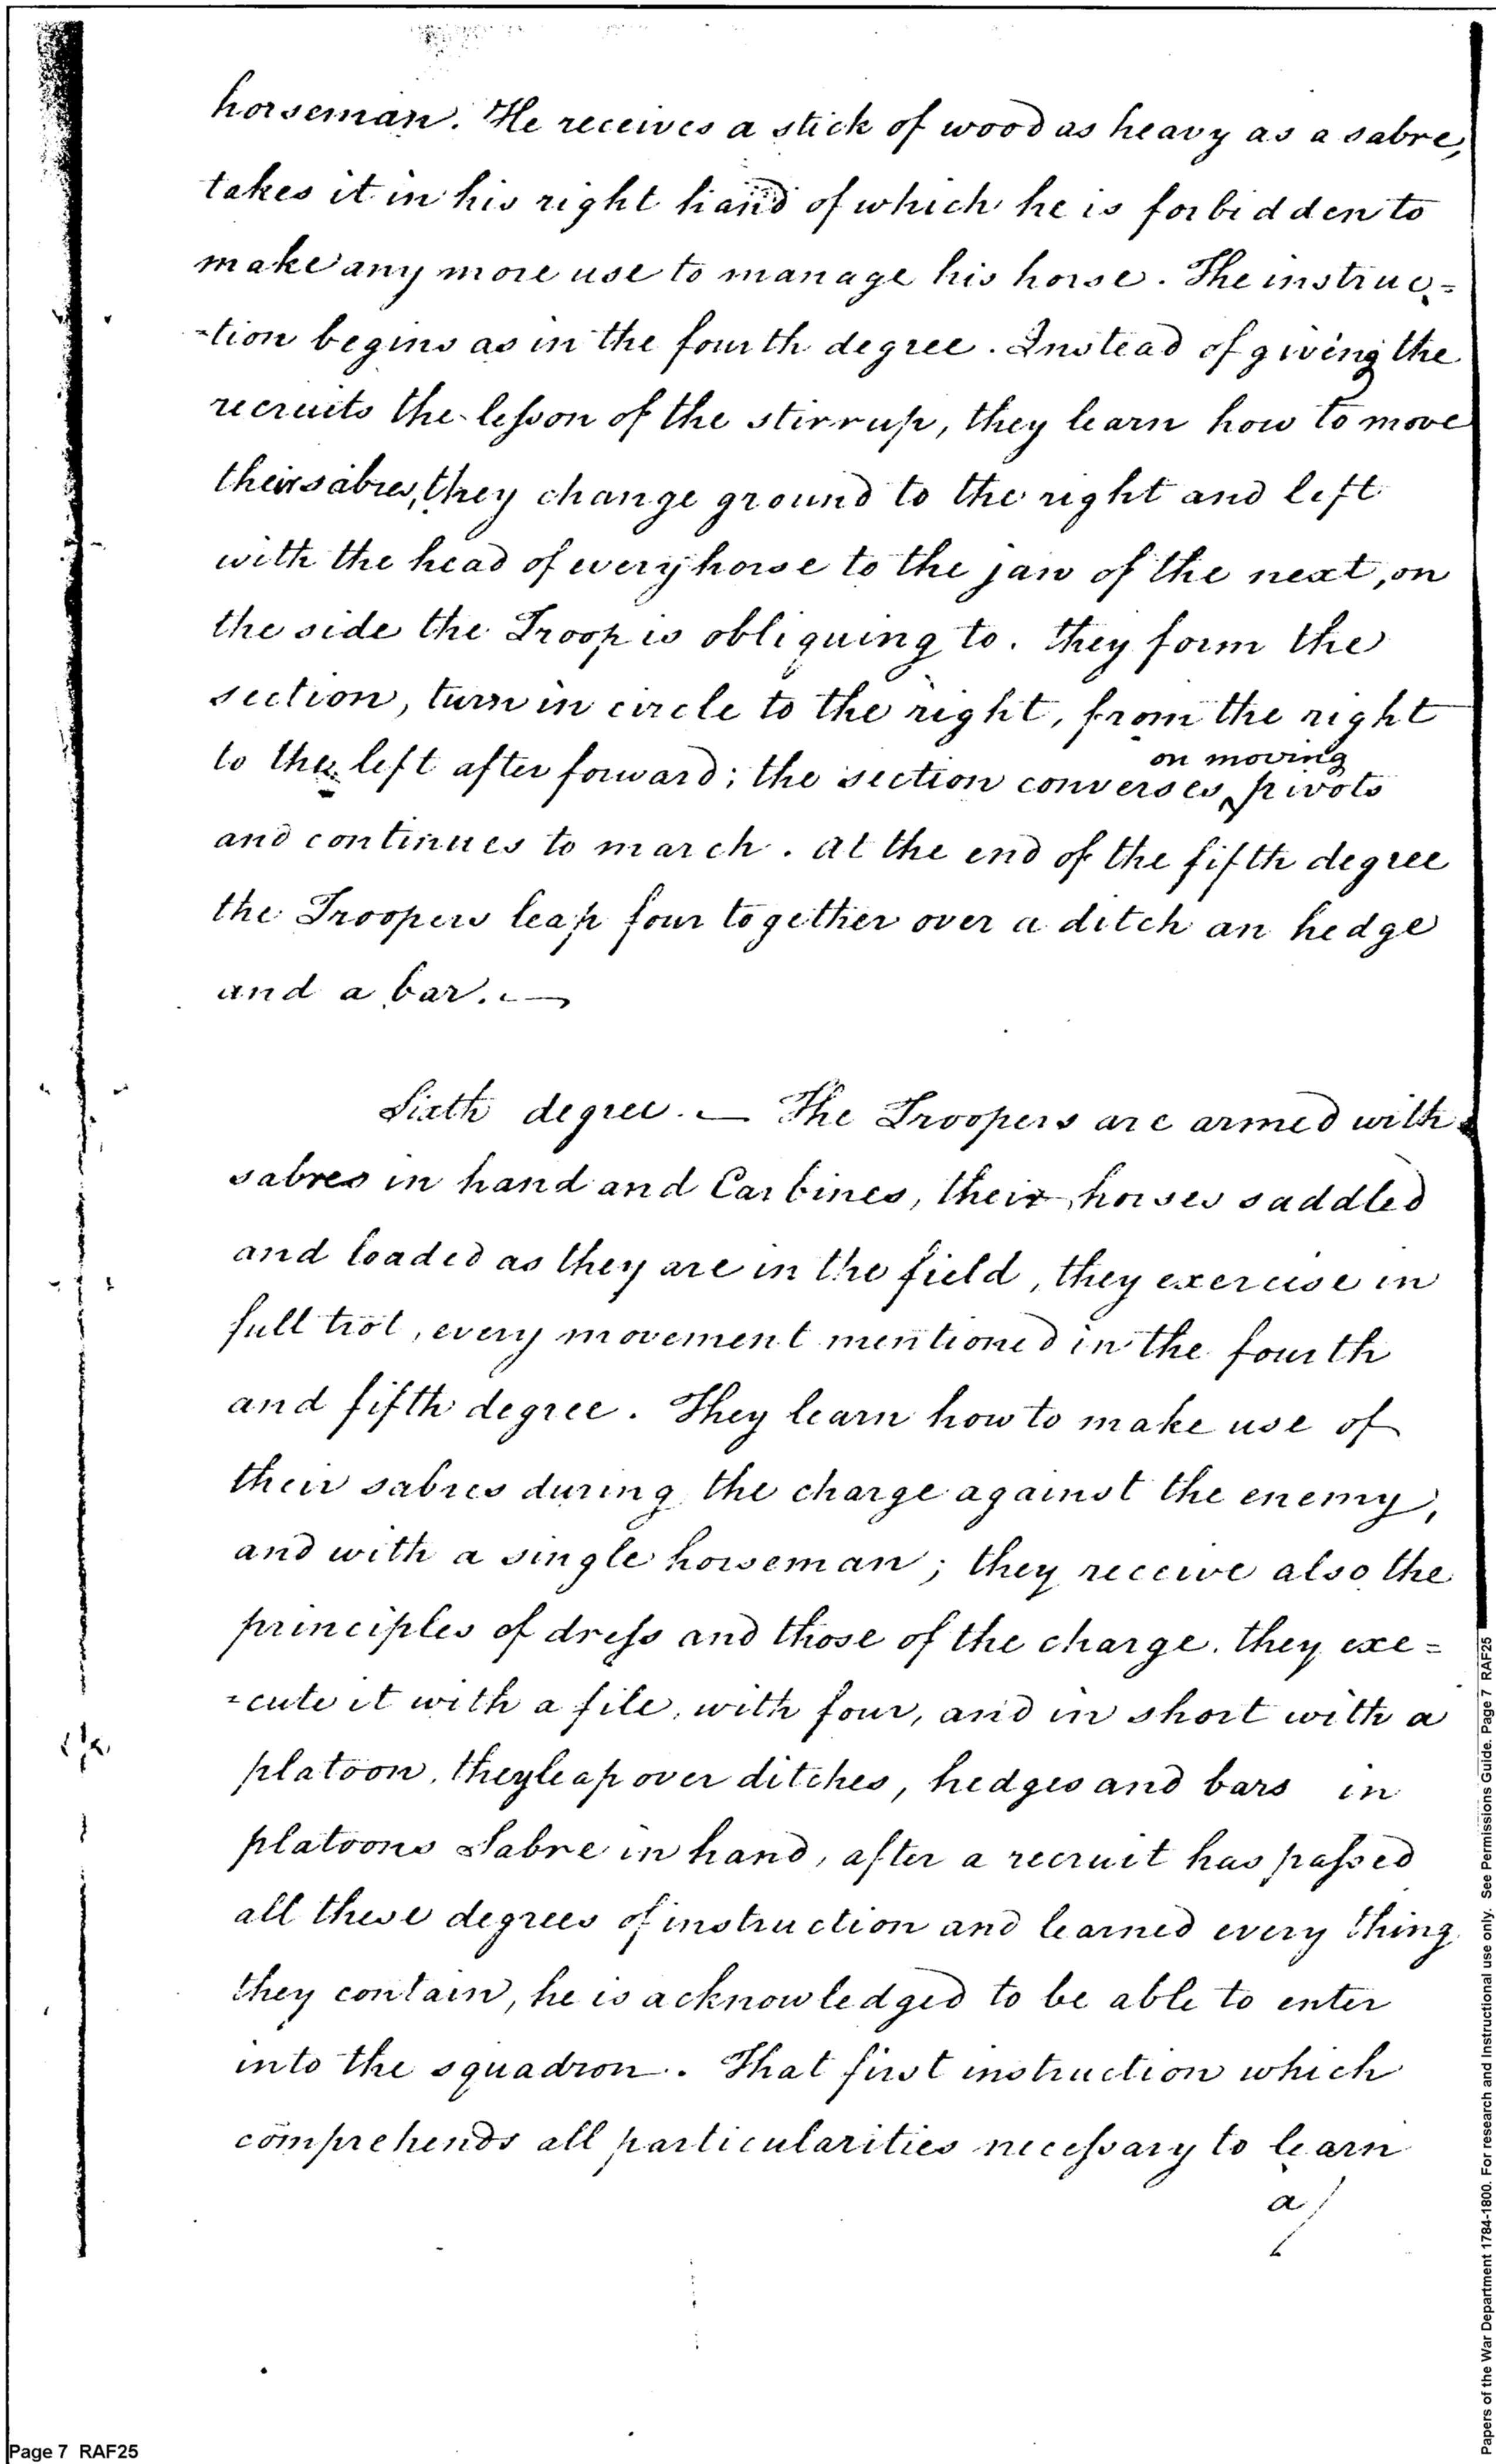 horseman. He receives a stick of wood as heavy as a sabre,
takes it in his right hand of which he is forbidden to
make any more use to manage his horse. The instruc=
-tion begins as in the fourth degree. Instead of giving the
recruits the lesson of the stirrup, they learn how to move
their sabres, they change ground to the right and left
with the head of every horse to the jaw of the next, on
the side the Troop is obliquing to. they form the
section, turn in circle to the right, from the right
on moving
to the left after forward; the section converses pivots
and continues to march. at the end of the fifth degree
the Troopers leap four together over a ditch an hedge
and a bar. —
Sixth degree. — The Troopers are armed with
sabres in hand and Carbines, their horses saddled
and loaded as they are in the field, they exercise in
full trot, every movement mentioned in the fourth
and fifth degree. They learn how to make use of
their sabres during the charge against the enemy,
and with a single horseman; they receive also the
principles of dress and those of the charge. they exe=
=cute it with a file, with four, and in short with a
platoon. they leap over ditches, hedges and bars in
platoons Sabre in hand, after a recruit has passed
all these degrees of instruction and learned every thing
they contain, he is acknowledged to be able to enter
into the squadron. That first instruction which
comprehends all particularities necessary to learn
a/
Page 7 RAF25
Papers of the War Department 1784-1800. For research and Instructional use only. See Permissions Guide. Page 7 RAF25